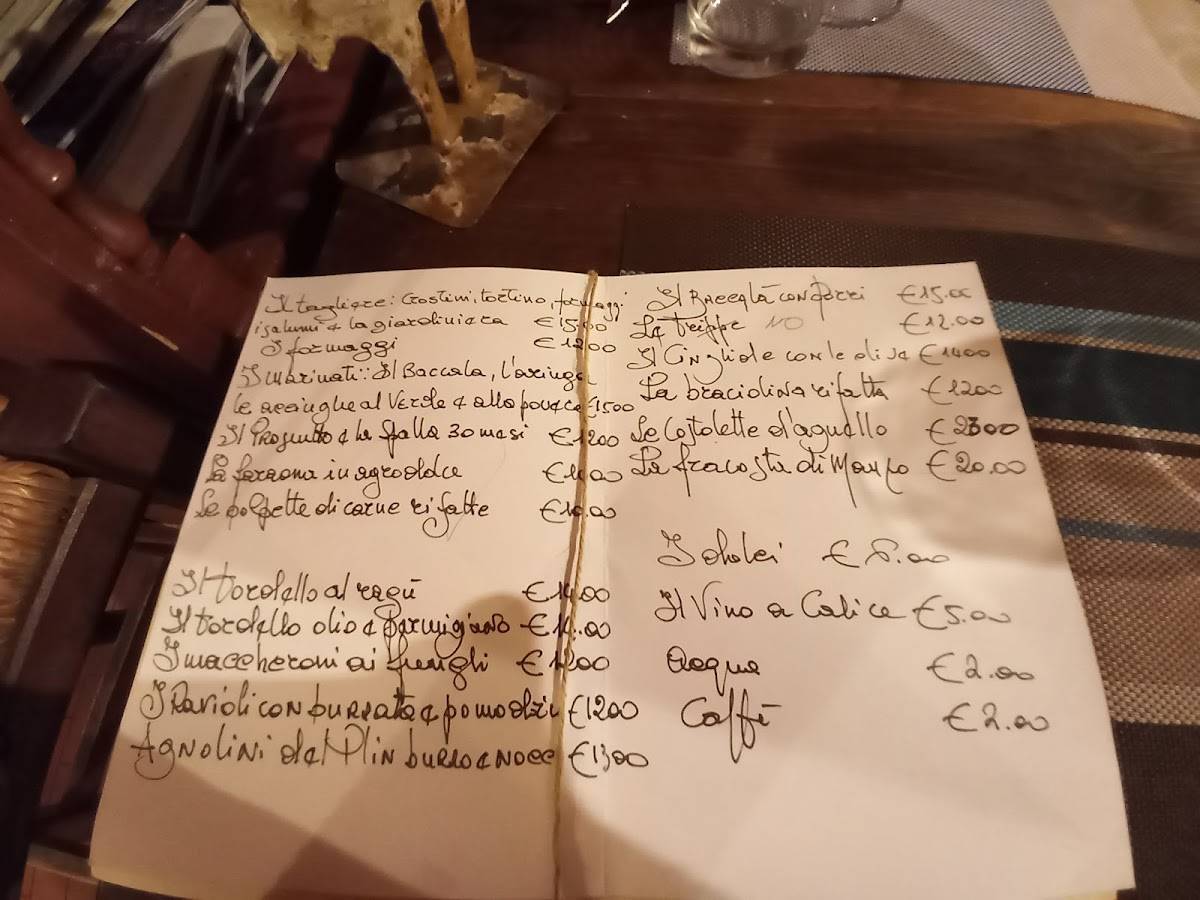 Il tagliere: Crostini, tortino, formaggi
i salumi e la giardiniera €15.00
I formaggi €12.00
I marinati: Il Baccalà, l'aringa
le acciughe al Verde e alla povera €15.00
Il Prosciutto e la spalla 30 mesi €12.00
La faraona in agrodolce
Le polpette di carne rifatte
Il tordello al ragù
Il tordello olio e parmigiano
I maccheroni ai funghi €12.00
I Ravioli con burrata e pomodori €12.00
Agnolini del Plin burro e noce €13.00
Il Baccalà con porri €15.00
La Trippa NO €12.00
Il Cinghiale con le olive €14.00
La braciolina rifatta €12.00
Le Costolette d'agnello
La fracosta di Manzo €20.00
I dolci
Il Vino a Calice €5.00
Acqua €2.00
Caffè €2.00